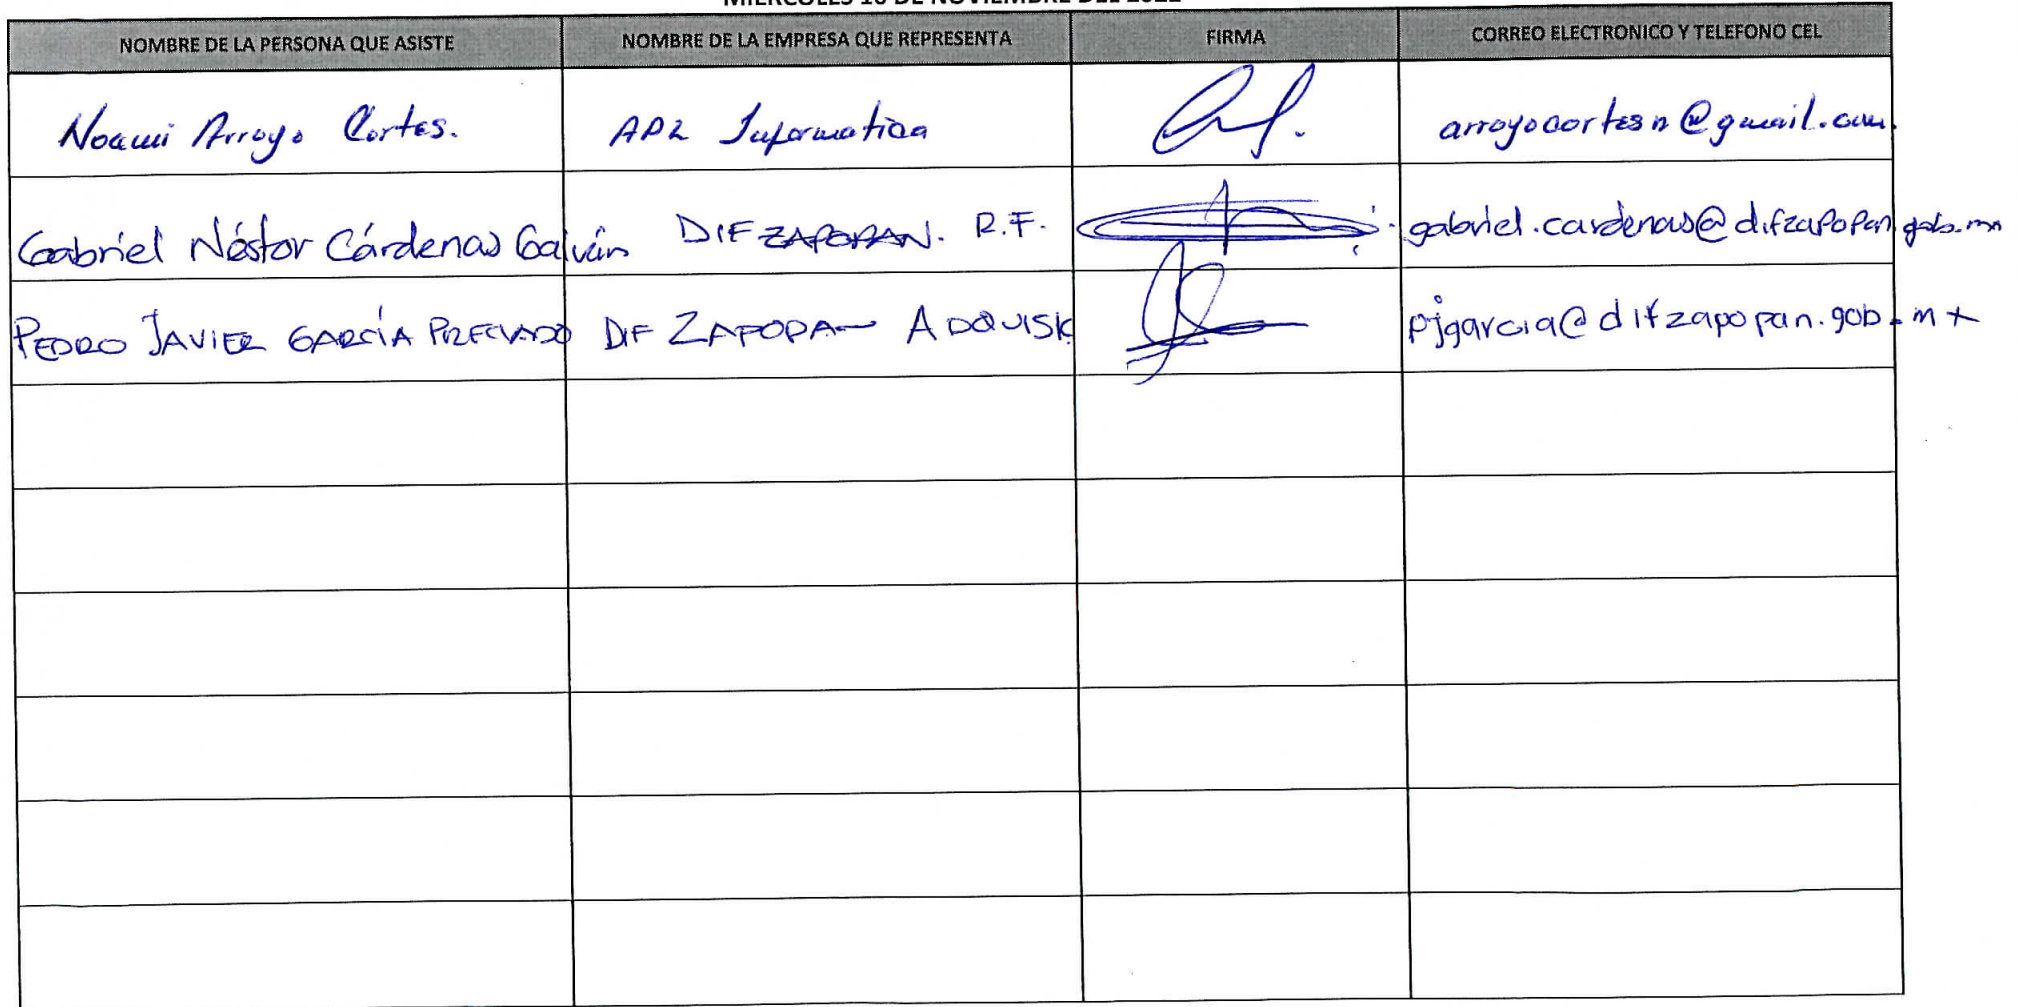 NOMBRE DE LA PERSONA QUE ASISTE NOMBRE DE LA EMPRESA QUE REPRESENTA FIRMA CORREO ELECTRONICO Y TELEFONO CEL
Noemi Arroyo Cortes. AP2 Informatica arroyocortesn@gmail.com.
Gabriel Néstor Cárdenas Galván DIF ZAPOPAN. R.F. gabriel.cardenas@difzapopan.gob.mx
PEDRO JAVIER GARCÍA PRECIADO DIF ZAPOPAN ADQUISIC pjgarcia@difzapopan.gob.mx